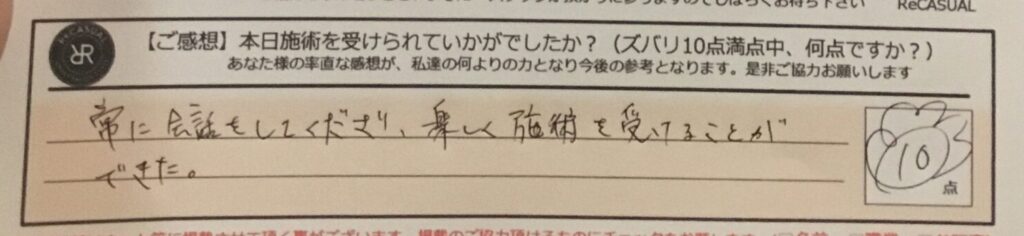 ReCASUAL
【ご感想】本日施術を受けられていかがでしたか？（ズバリ10点満点中、何点ですか？）
あなた様の率直な感想が、私達の何よりの力となり今後の参考となります。是非ご協力お願いします
常に会話をしてくださり、楽しく施術を受けることが
できた。
10
点